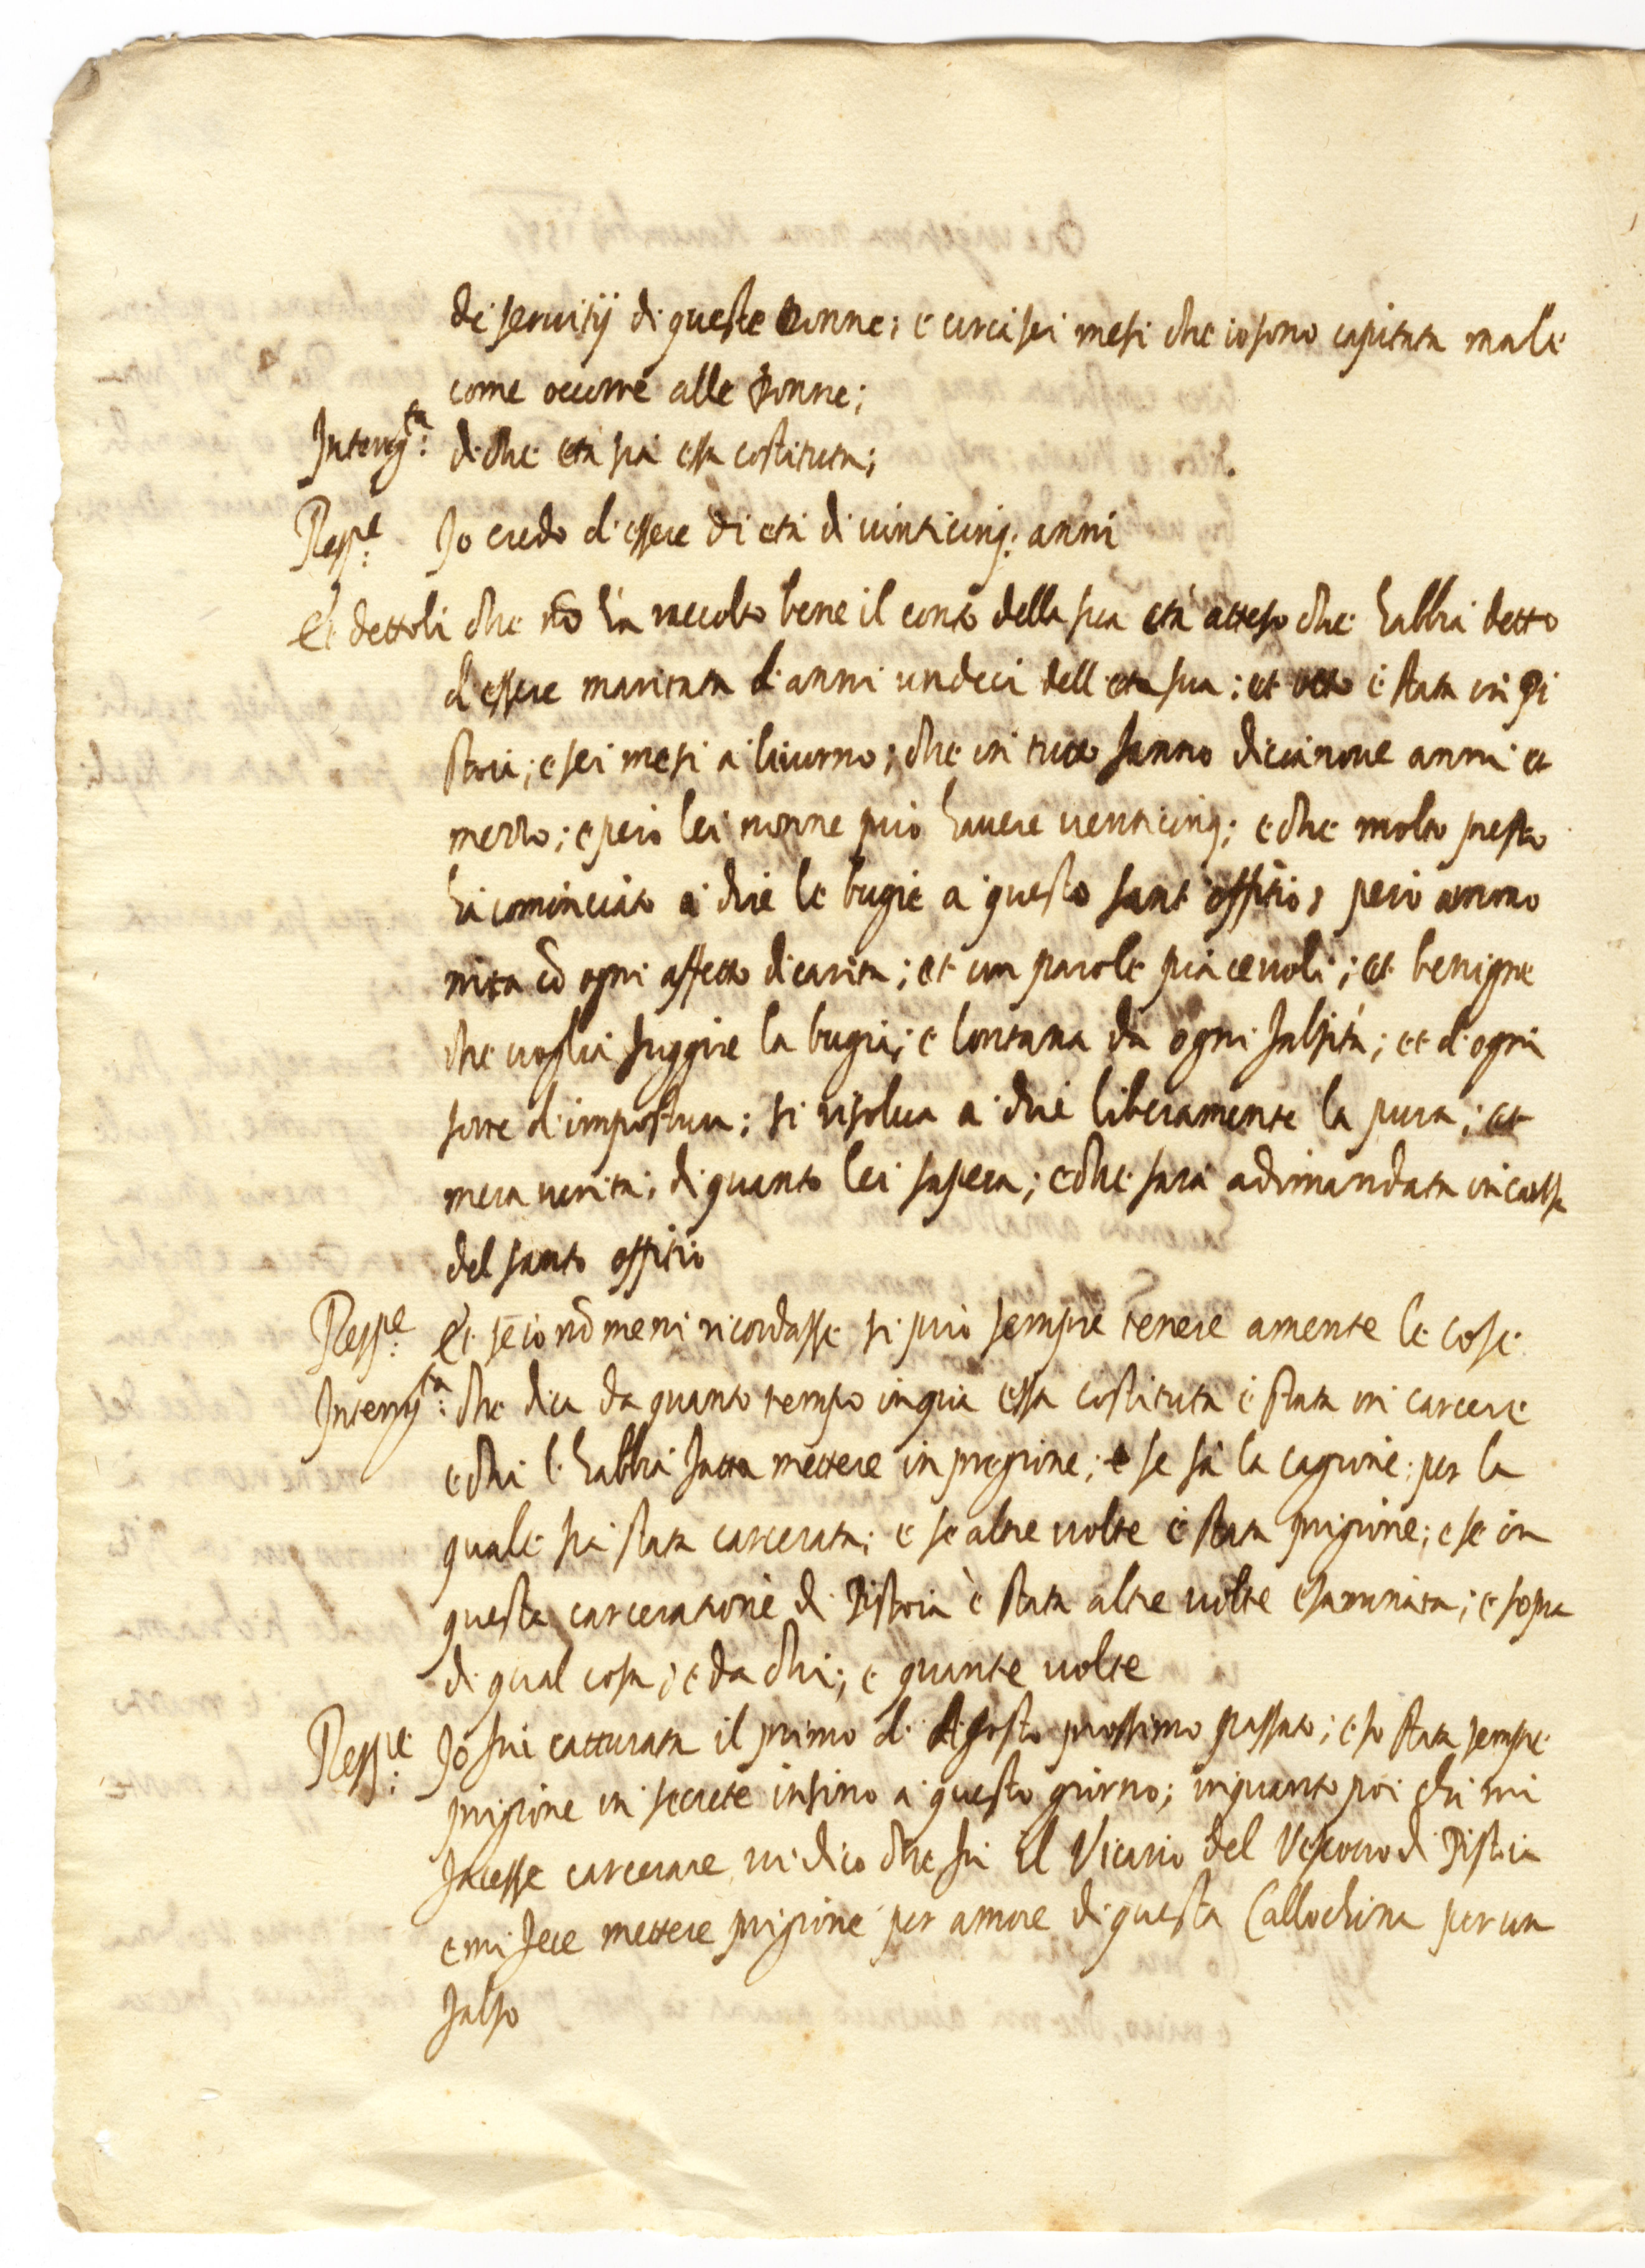 de seruitij di queste Donne; e circa sei mesi che io sono capitata male
come occorre alle Donne;
Interrog.ta di che età sia essa costituta;
Resp.e Io credo d'essere di età di vinticinq; anni
Et dettoli che nō hà raccolto bene il conto della sua età atteso che habbia detto
d'essere maritata d'anni undeci dell'età sua; et otto è stata in Pi
stoia; e sei mesi a liuorno; che in tutto fanno diecianoue anni et
mezzo; e però lei nonne può hauere venticinq; e che molto presto
hà cominciato a dire le bugie a questo sant'offitio; però ammo
nita cō ogni affetto di carità; et con parole piaceuoli; et benigne
che voglia fuggire la bugia; e lontana da ogni falsità; et d'ogni
sorte d'impostura; si risolua a dire liberamente la pura; et
mera verità; di quanto lei sapera; e che sarà adimandata in causa
del santo offitio
Resp.e Et se io nō me ni ricordasse si può sempre tenere amente le cose
Interrog.ta che dica da quanto tempo in quà essa costituta è stata in carcere
e chi l'habbia fatta mettere in pregione; e se sà la cagione; per la
quale sia stata carcerata; e se altre uolte è stata prigione; e se in
questa carceratione di Pistoia è stata altre uolte esaminata; e sopra
di qual cosa; e da chi; e quante uolte
Resp.e Io fui catturata il primo d'Agosto prossimo passato; e so stata sempre
prigione in secrete insino a questo giorno; inquanto poi chi mi
facesse carcerare vi dico che fu il Vicario del Vescouo di Pistoia
e mi fece mettere prigione per amore di questa Callochina per un
falso